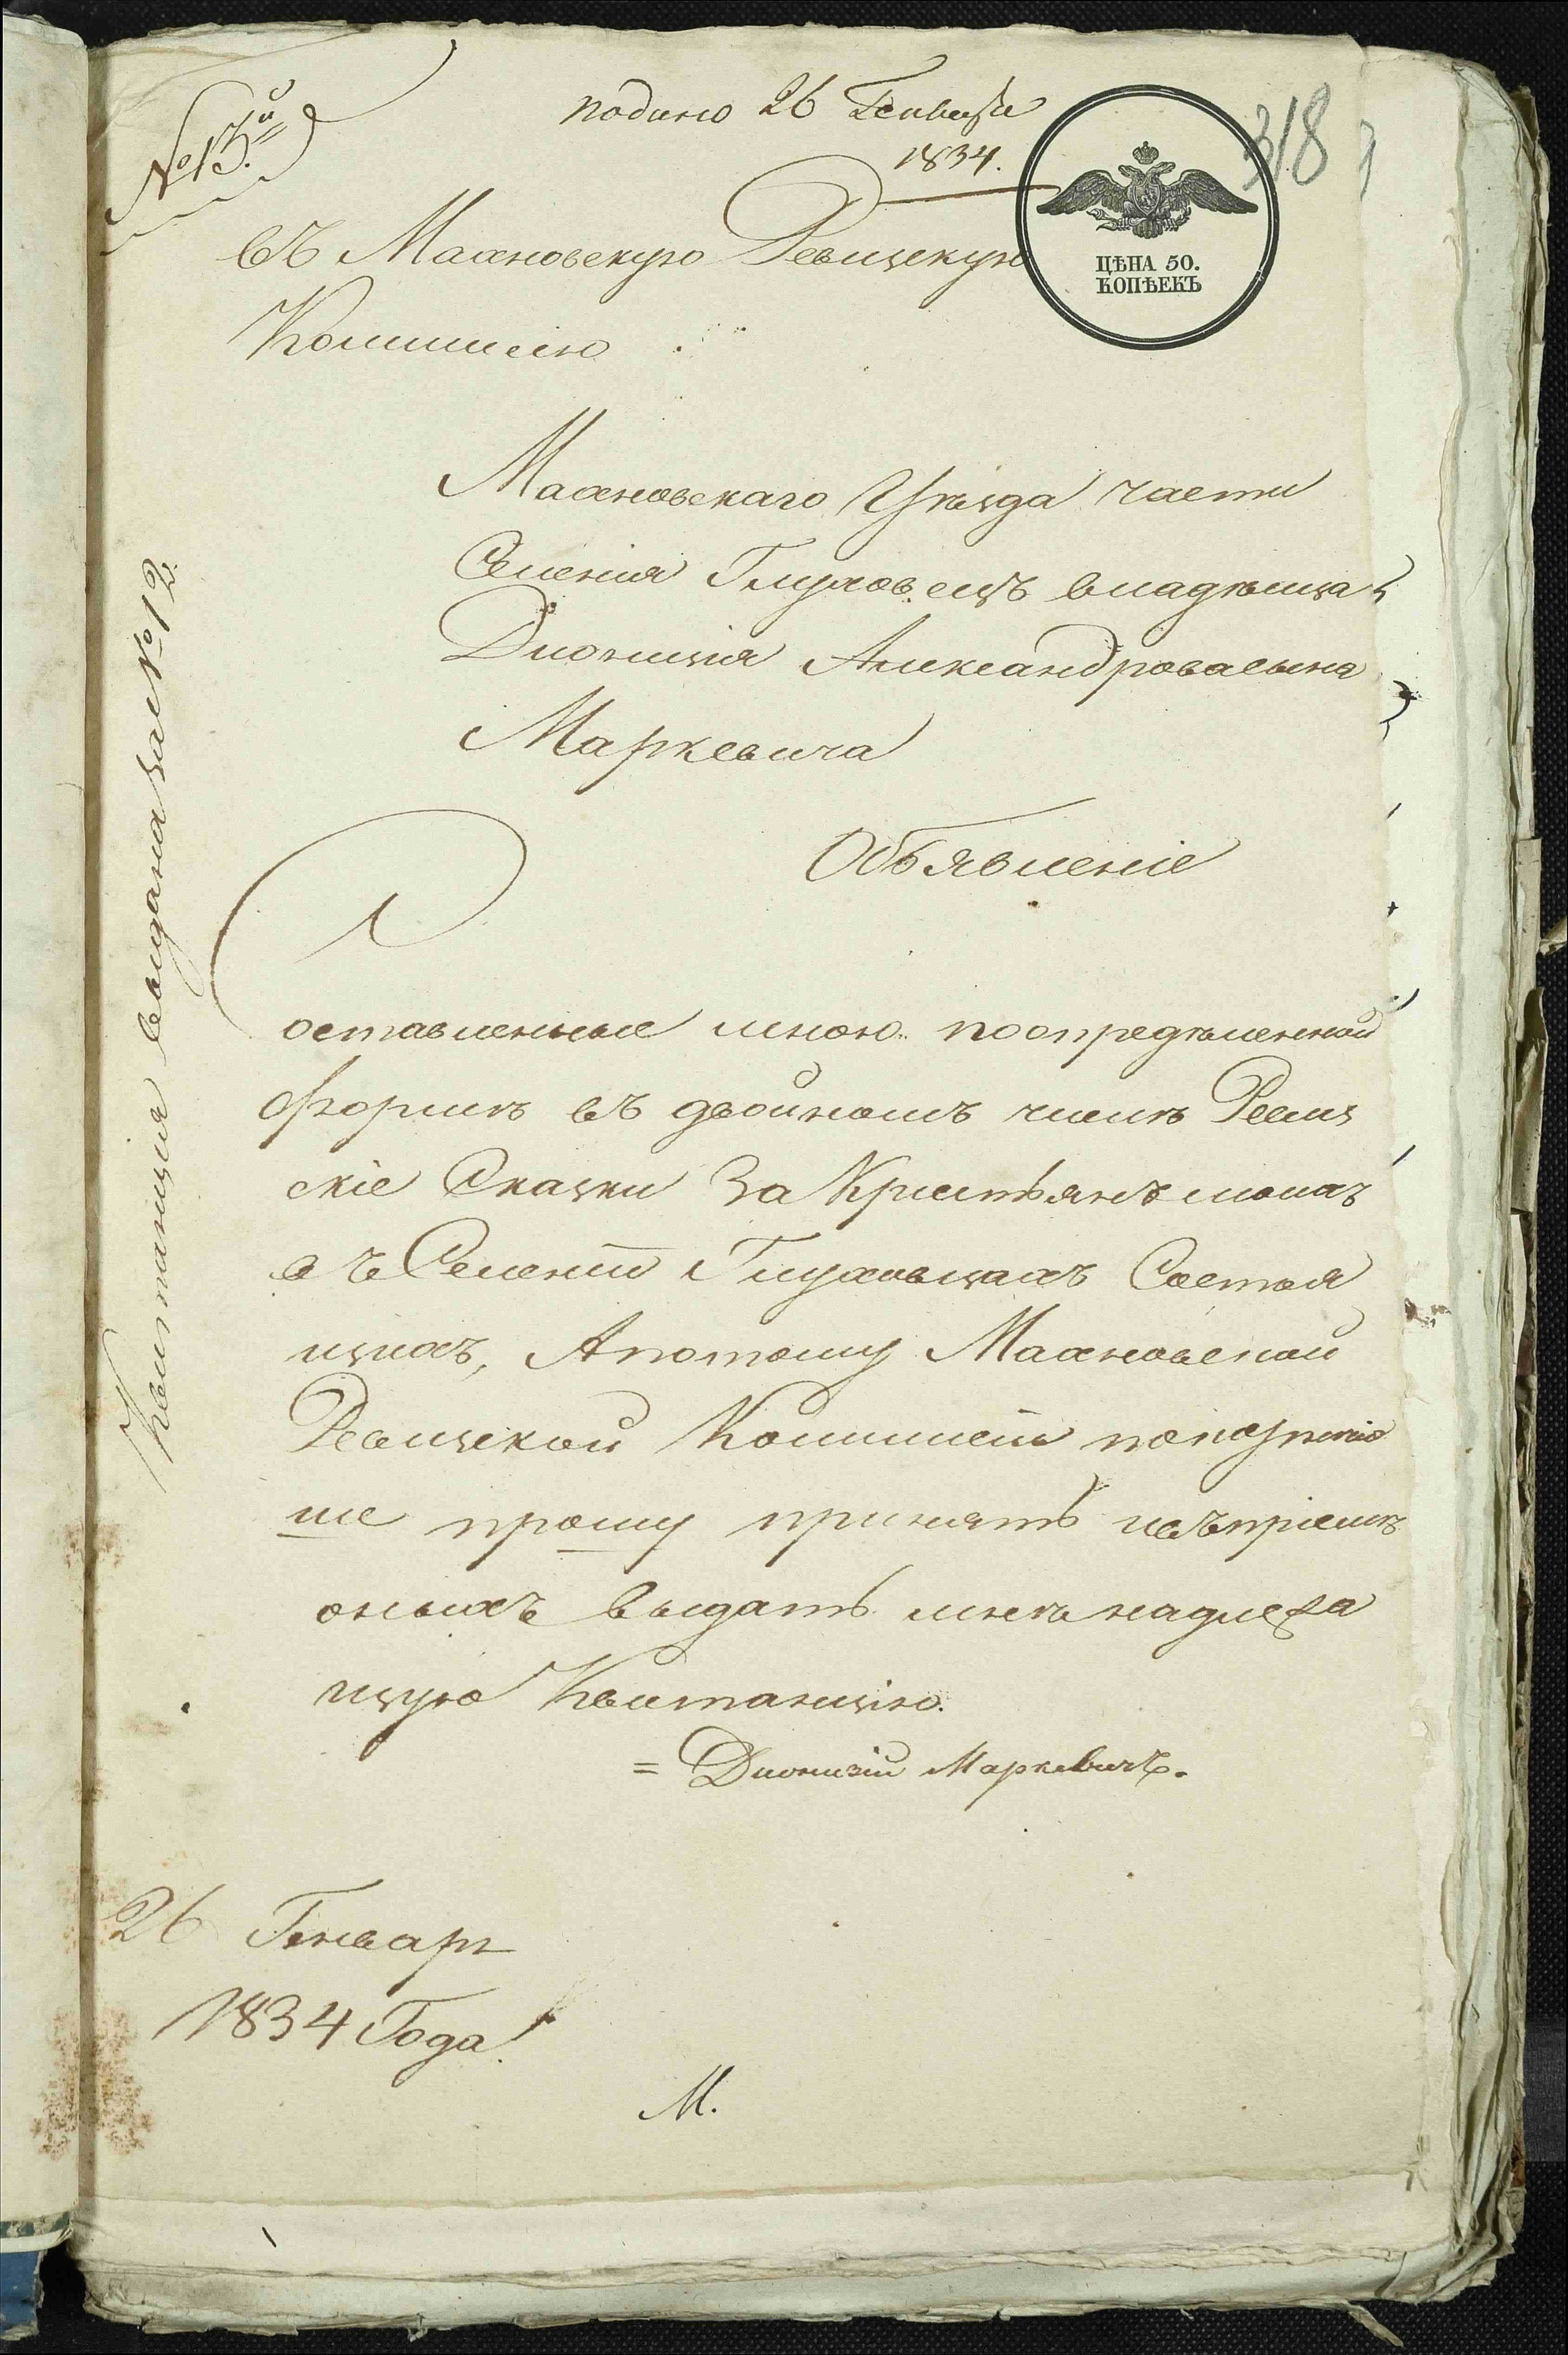 № 13й
подано 26 Генваря
1834.
318
ЦѢНА 50.
КОПѢЕКЪ
въ Махновскую Ревизскую
Коммисію
Махновскаго Уѣзда части
Селенія Глуховецъ владѣльца
Дионизія Александрова сына
Маркевича
Объявленіе
Составленные мною поопредѣленной
Формѣ въ двойномъ числѣ Ревиз
скіе Сказки За Крестьянъ моихъ
въ Селеніи Глуховцахъ Состоя
щихъ, Апотому Махновской
Ревизской Коммисіи покорнѣй
ше прошу принять ивъпріемѣ
оныхъ выдать мнѣ надлежа
щую Квитанцію.
= Дионизій Маркевичъ.
26 Генваря
1834 Года
М.
Квитанція выдана за № 12